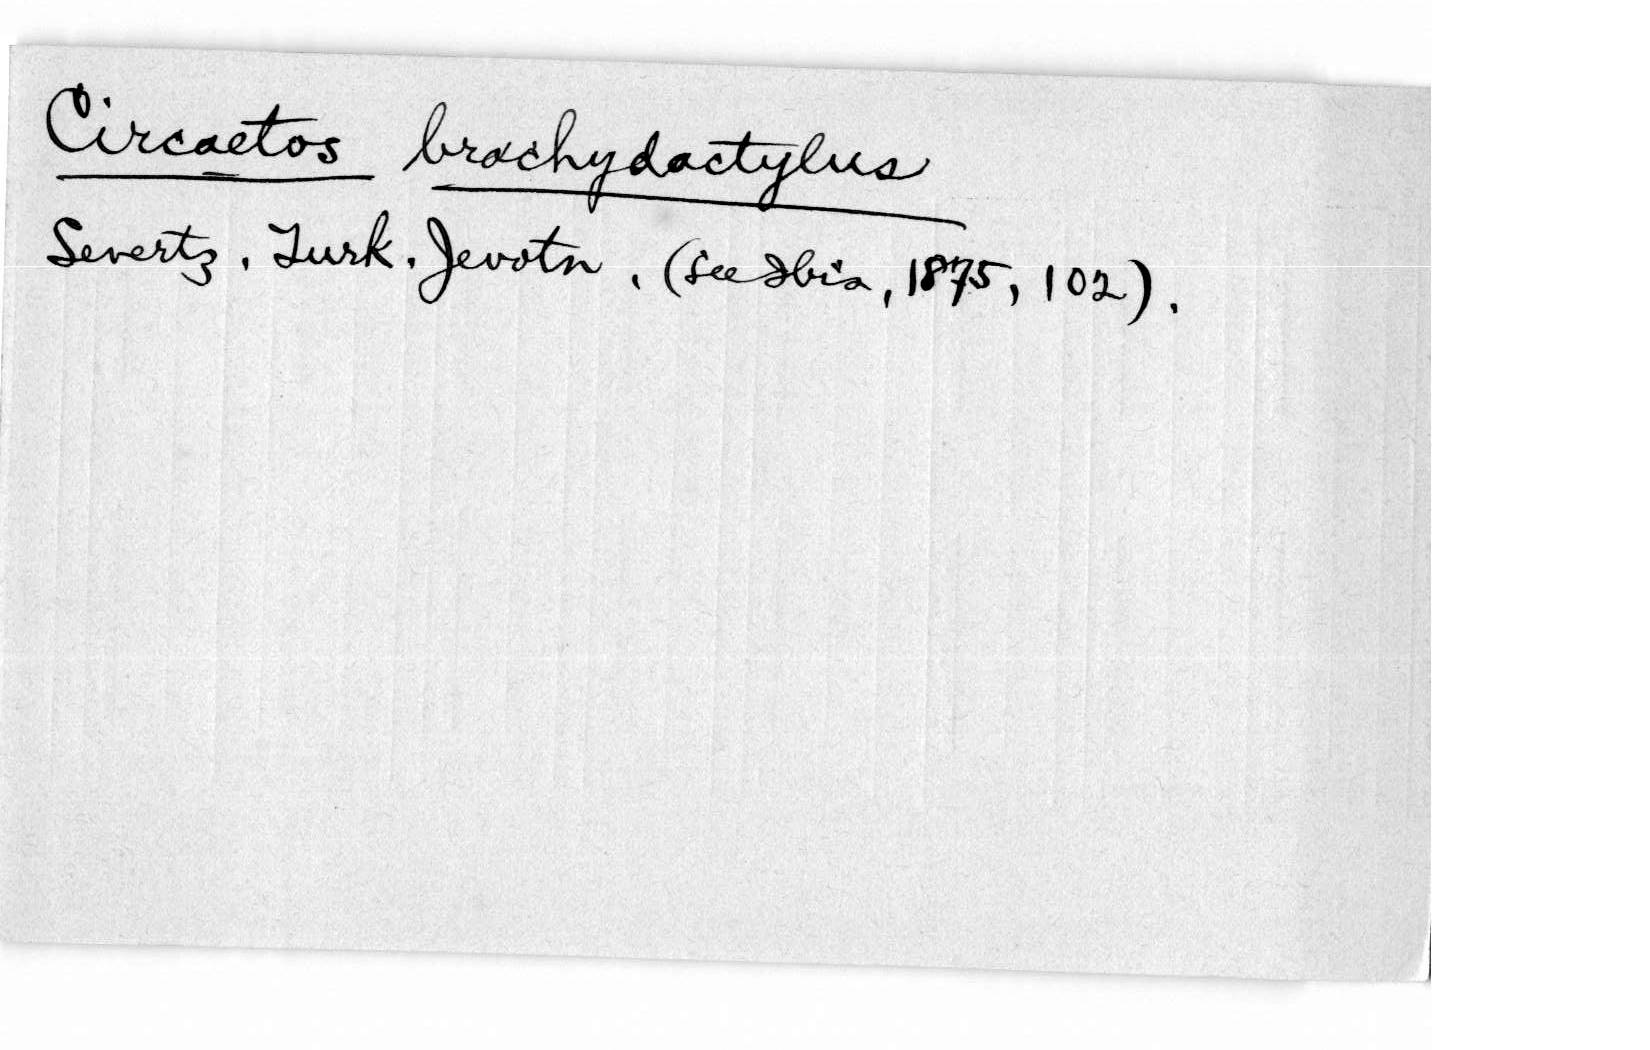 Circaetos brachydactylus
Severtz. Turk. Jevotn. (see Ibis, 1875, 102).